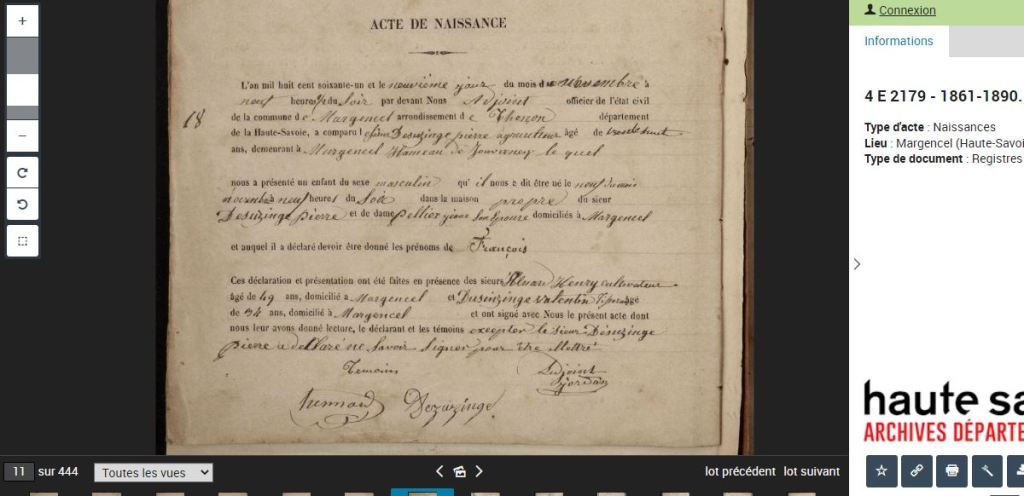 ACTE DE NAISSANCE
L'an mil huit cent soixante-un et le neuvième jour du mois de novembre à
neuf heures du Soir par devant Nous Adjoint officier de l'état civil
18
de la commune de Margencel arrondissement de Thonon département
de la Haute-Savoie, a comparu le sieur Desuzinge pierre agriculteur âgé de trente huit
ans, demeurant à Margencel Hameau de Jouvernex le quel
nous a présenté un enfant du sexe masculin qu'il nous a dit être né le neuf du mois
novembre à neuf heures du Soir dans la maison propre du sieur
Desuzinge pierre et de dame pellier Son Epouse domiciliés à Margencel
et auquel il a déclaré devoir être donné les prénoms de François
Ces déclaration et présentation ont été faites en présence des sieurs Henry cultivateur
âgé de 49 ans, domicilié à Margencel et Dusinzinge valentin âgé
de 34 ans, domicilié à Margencel et ont signé avec Nous le présent acte dont
nous leur avons donné lecture, le déclarant et les témoins excepter le sieur Desuzinge
pierre a declaré ne Savoir Signer pour être illettré
Temoins
Adjoint
Jordan
Dezuzinge
11 sur 444
Toutes les vues
lot précédent lot suivant
Connexion
Informations
4 E 2179 - 1861-1890.
Type d'acte : Naissances
Lieu : Margencel (Haute-Savoi
Type de document : Registres
haute sa
ARCHIVES DÉPARTE